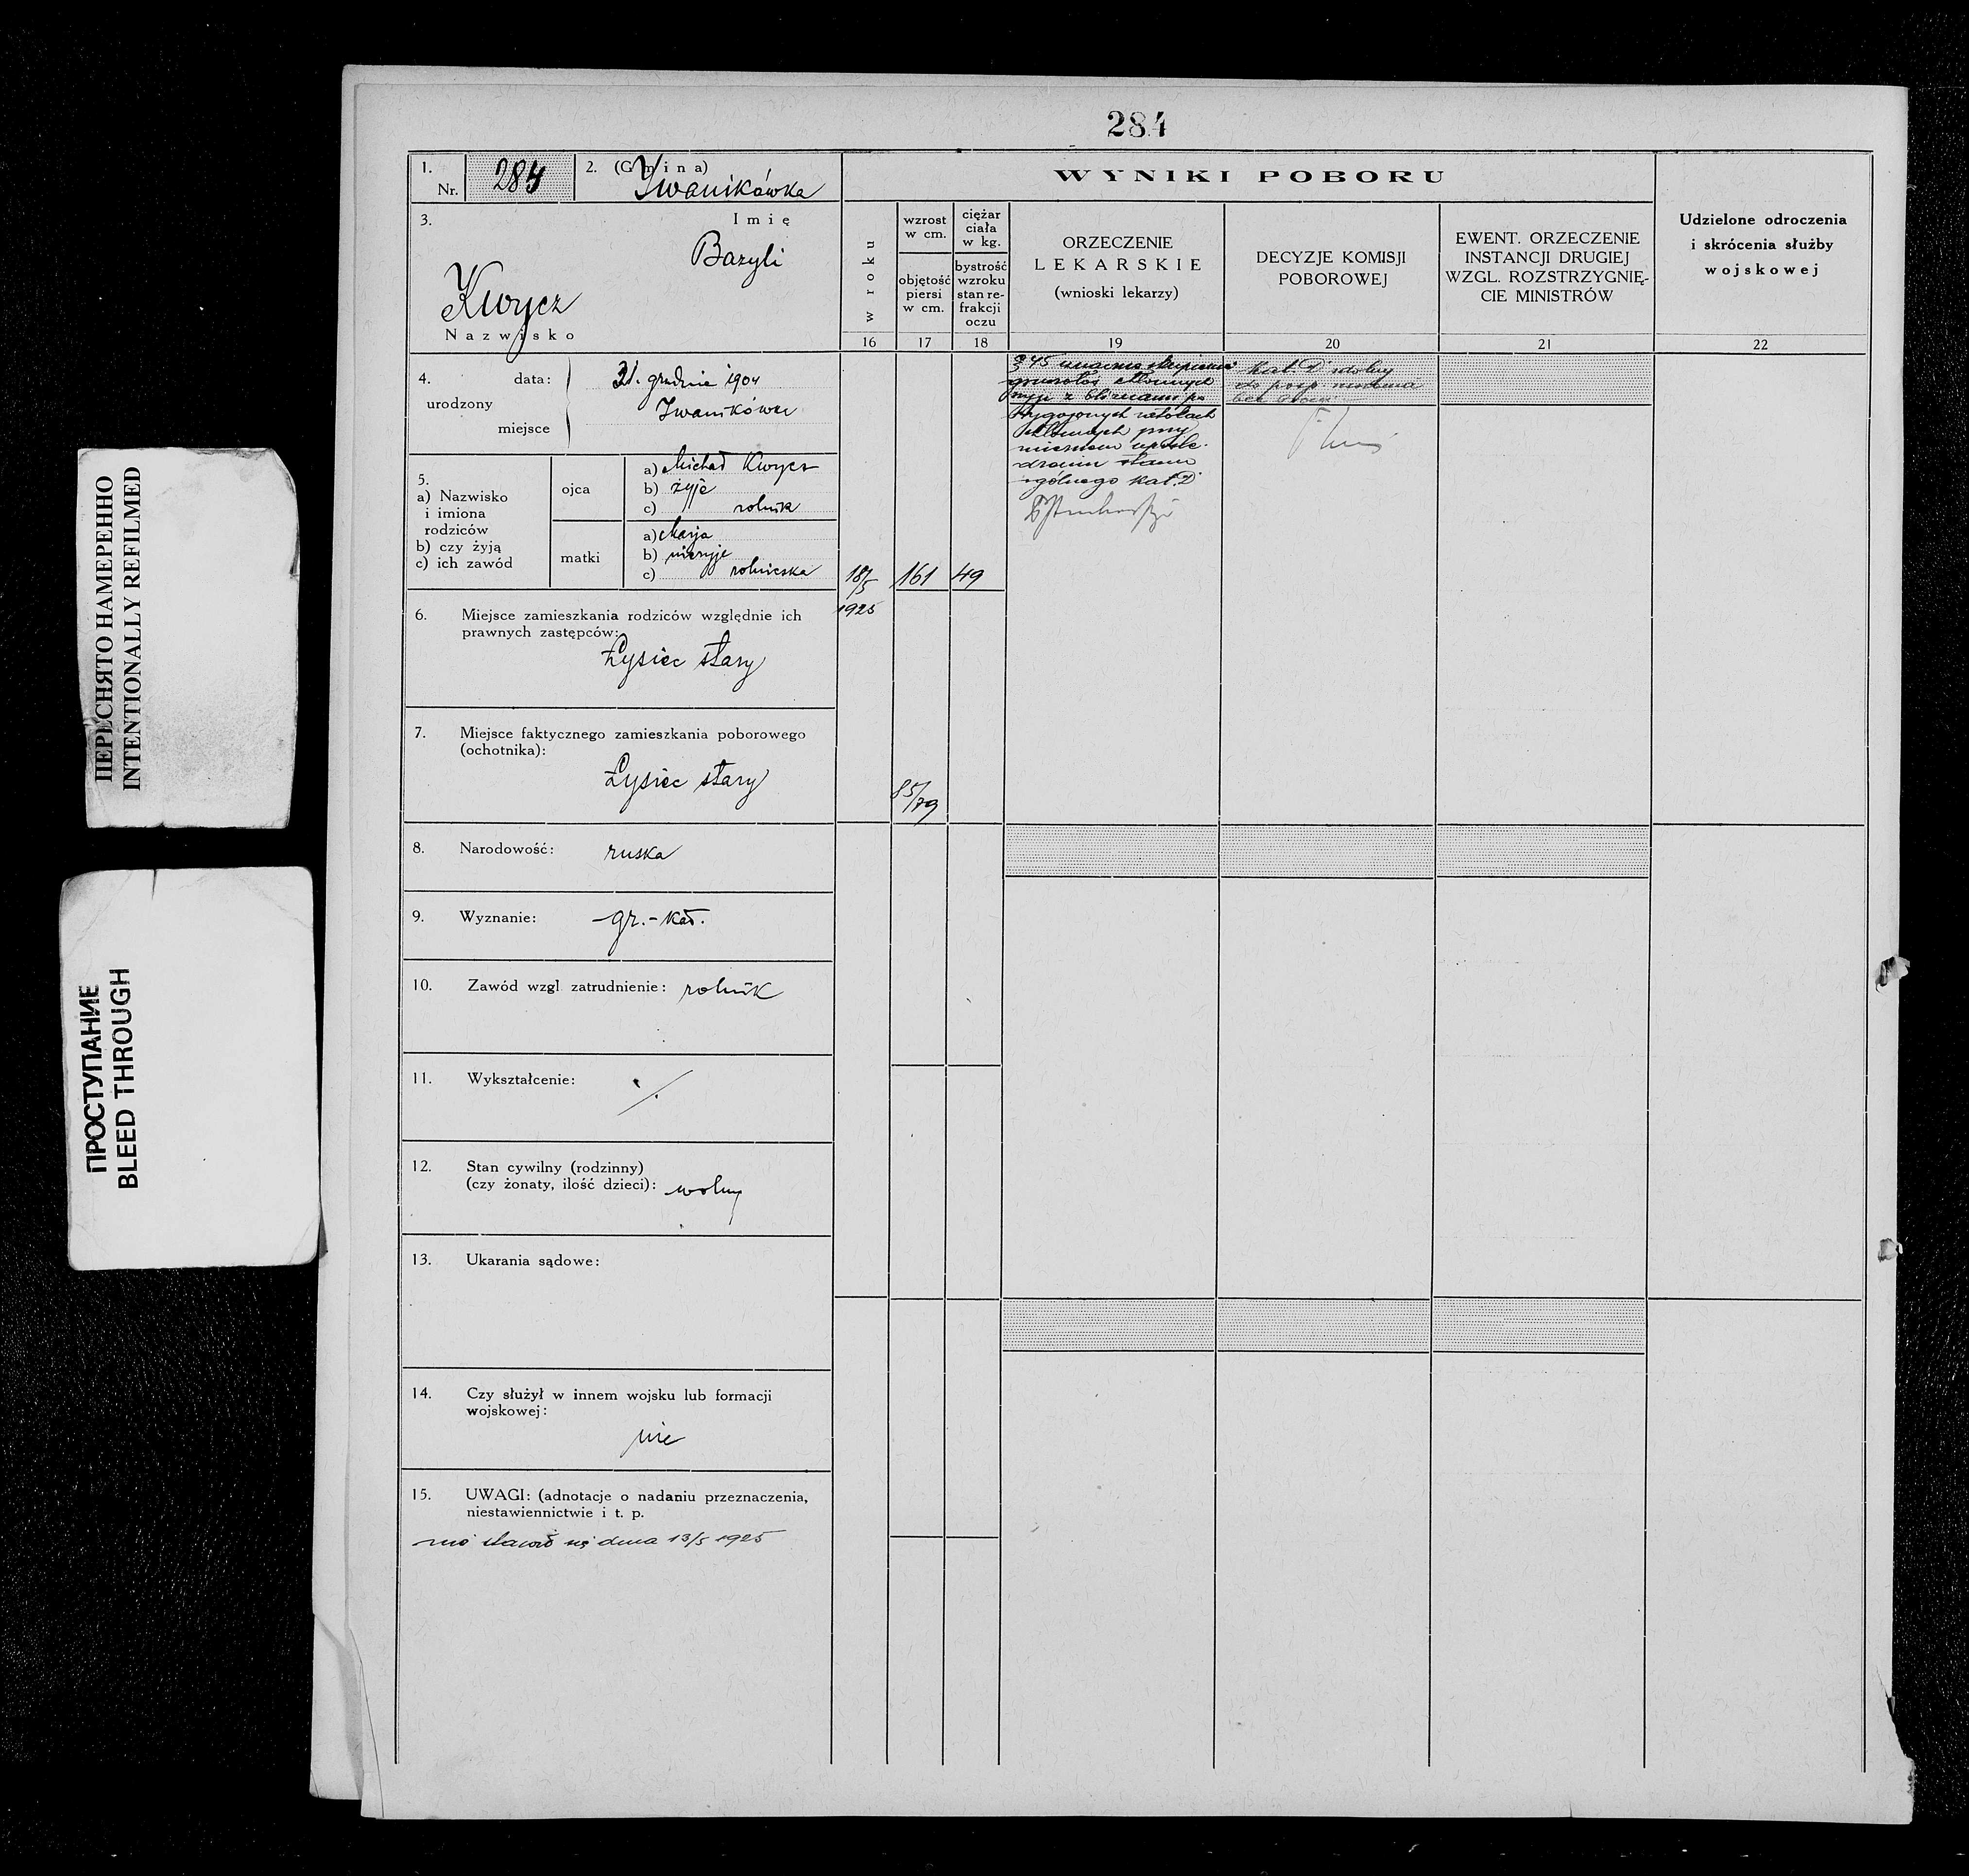 284
1.
Nr. 284
2. (Gmina)
Iwanikówka
3. Imię
Bazyli
Kwycz
Nazwisko
4. urodzony
data: 31. grudnia 1904
miejsce Iwanikówka
5.
a) Nazwisko
i imiona
rodziców
b) czy żyją
c) ich zawód
ojca
a) Michał Kwycz
b) żyje
c) rolnik
matki
a) Marja
b) nieżyje
c) rolniczka
6. Miejsce zamieszkania rodziców względnie ich
prawnych zastępców:
Łysiec stary
7. Miejsce faktycznego zamieszkania poborowego
(ochotnika):
Łysiec stary
8. Narodowość: ruska
9. Wyznanie: gr.-kat.
10. Zawód wzgl. zatrudnienie: rolnik
11. Wykształcenie: ./.
12. Stan cywilny (rodzinny)
(czy żonaty, ilość dzieci): wolny
13. Ukarania sądowe:
14. Czy służył w innem wojsku lub formacji
wojskowej:
nie
15. UWAGI: (adnotacje o nadaniu przeznaczenia,
niestawiennictwie i t. p.
nie stawił się dnia 13/5 1925
WYNIKI POBORU
w roku
16
18/5
1925
wzrost
w cm.
objętość
piersi
w cm.
17
161
85/79
ciężar
ciała
w kg.
bystrość
wzroku
stan re-
frakcji
oczu
18
49
ORZECZENIE
LEKARSKIE
(wnioski lekarzy)
19
§ 45 znaczne skupienia
gruczołów chłonnych
szyi z bliznami po
wygojonych
chłonnych przy
miernem upośle-
dzeniu stanu
ogólnego kat. D
DECYZJE KOMISJI
POBOROWEJ
20
Kat. D zdolny
do posp. ruszenia
bez broni
EWENT. ORZECZENIE
INSTANCJI DRUGIEJ
WZGL. ROZSTRZYGNIĘ-
CIE MINISTRÓW
21
Udzielone odroczenia
i skrócenia służby
wojskowej
22
ПЕРЕСНЯТО НАМЕРЕННО
INTENTIONALLY REFILMED
ПРОСТУПАНИЕ
BLEED THROUGH